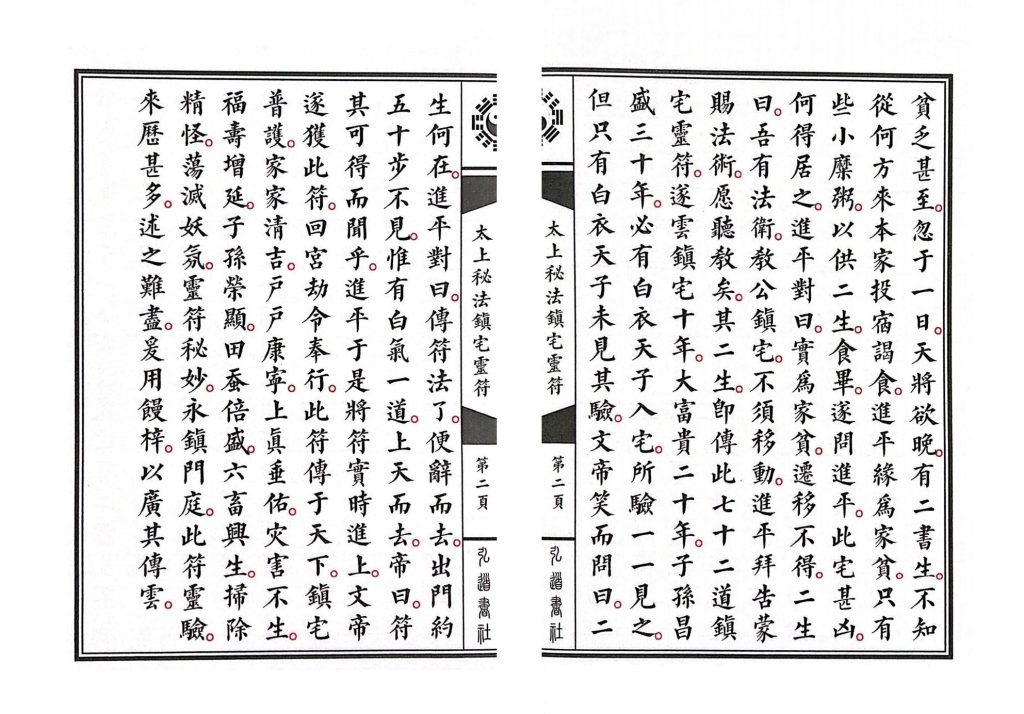 貧乏甚至。忽于一日。天將欲晚。有二書生。不知
從何方來本家投宿謁食。進平緣爲家貧。只有
些小糜粥。以供二生。食畢。遂問進平。此宅甚凶。
何得居之。進平對曰。實爲家貧。遷移不得。二生
曰。吾有法衛。教公鎮宅。不須移動。進平拜告蒙
賜法術。愿聽教矣。其二生。卽傳此七十二道鎮
宅靈符。遂雲鎮宅十年。大富貴二十年。子孫昌
盛三十年。必有白衣天子入宅。所驗一一見之。
但只有白衣天子未見其驗。文帝笑而問曰。二
太上秘法鎮宅靈符
第二頁
弘道書社
太上秘法鎮宅靈符
第二頁
弘道書社
生何在。進平對曰。傳符法了。便辭而去。出門約
五十步不見。惟有白氣一道。上天而去。帝曰。符
其可得而聞乎。進平于是將符實時進上。文帝
遂獲此符。回宮劫令奉行。此符傳于天下。鎮宅
普護。家家清吉。戶戶康寧。上眞垂佑。灾害不生。
福壽增延。子孫榮顯。田蚕倍盛。六畜興生。掃除
精怪。蕩滅妖氛。靈符秘妙。永鎮門庭。此符靈驗。
來歷甚多。述之難盡。爰用饅梓。以廣其傳雲。